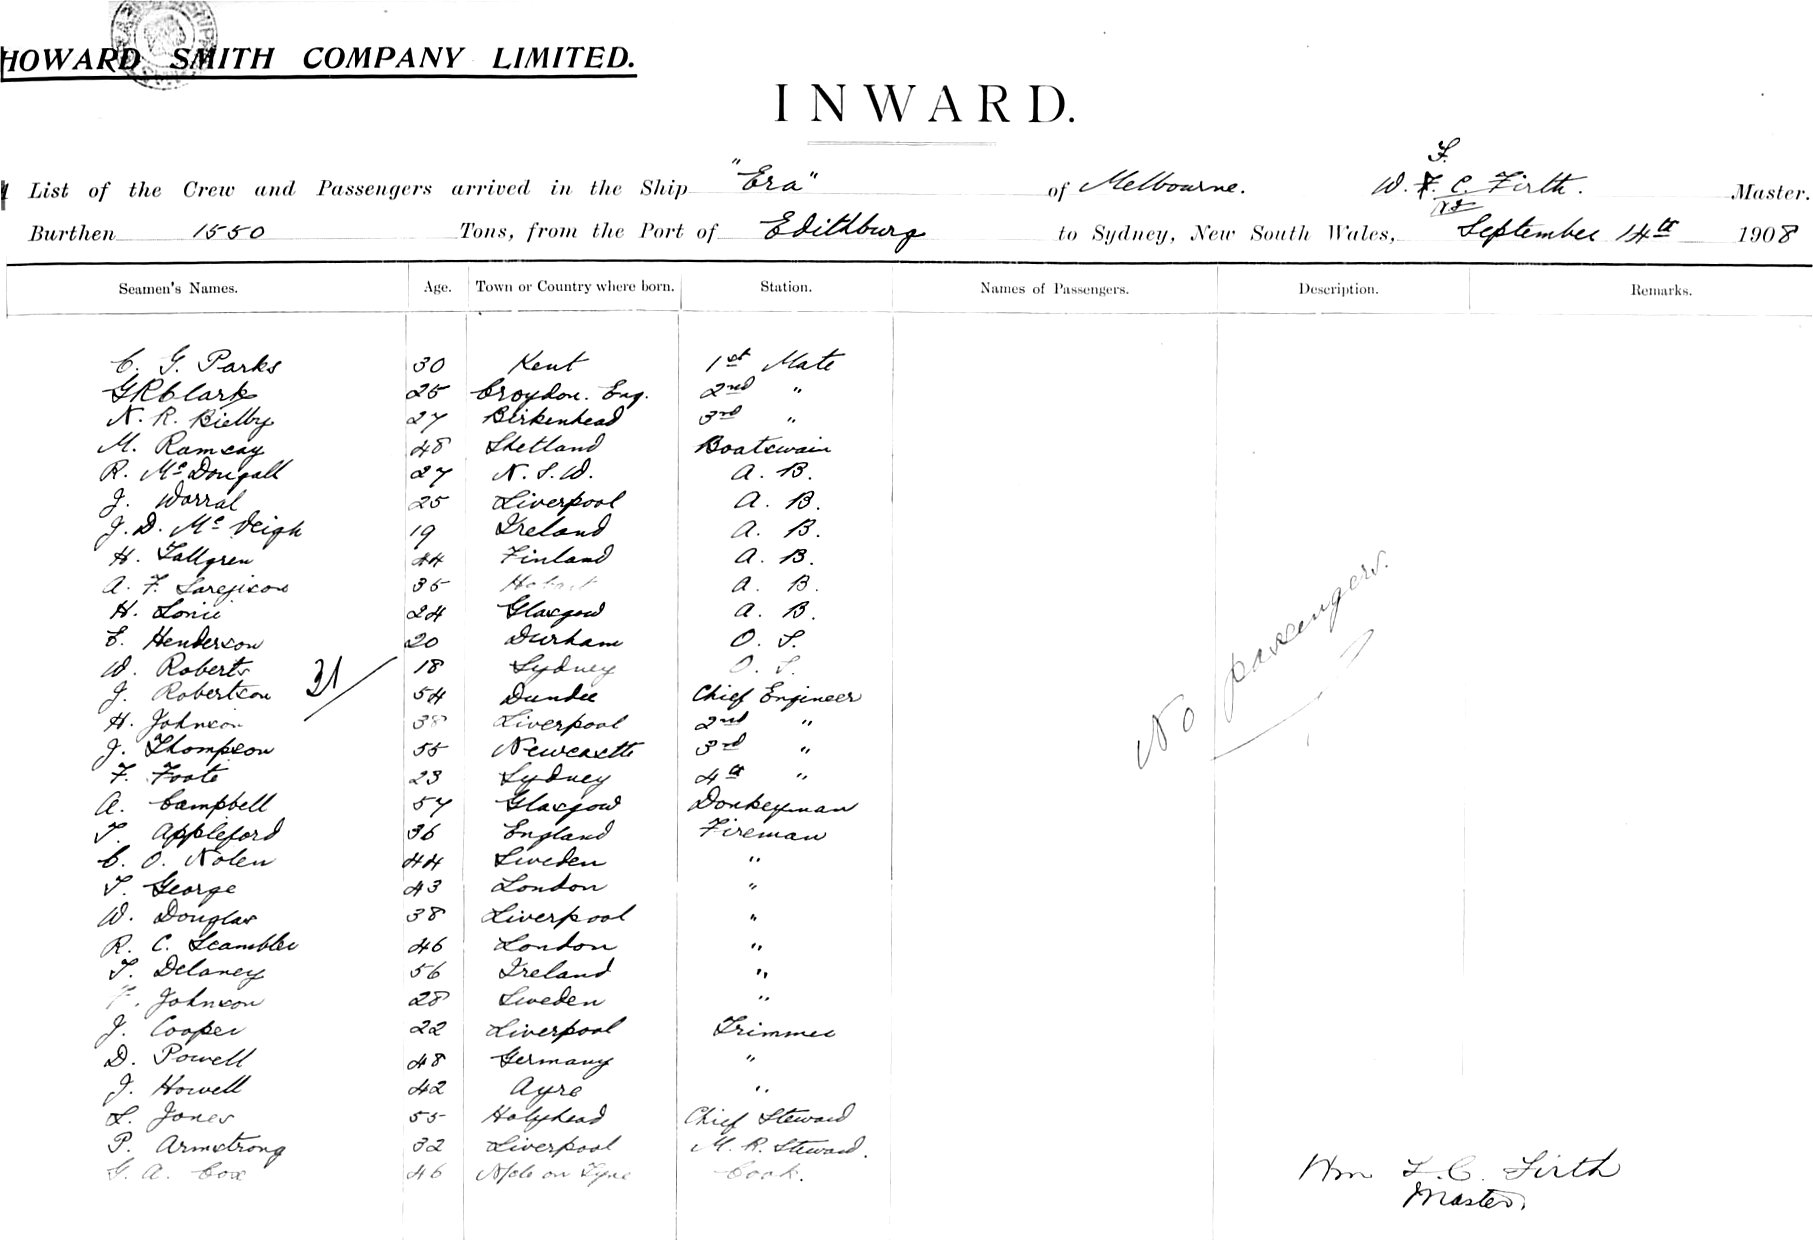 HOWARD SMITH COMPANY LIMITED.
INWARD.
A List of the Crew and Passengers arrived in the Ship "Era" of Melbourne. W. F. C. Firth. Master.
Burthen 1550 Tons, from the Port of Edithburg to Sydney, New South Wales, September 14th 1908
Seamen's Names. Age. Town or Country where born. Station. Names of Passengers. Description. Remarks.
C. G. Parks 30 Kent 1st Mate
G R Clark 25 Croydon. Eng. 2nd "
N. R. Bielby 27 Birkenhead 3rd "
M. Ramsay 48 Shetland Boatswain
R. McDougall 27 N. S. W. A. B.
J. Worral 25 Liverpool A. B.
J. D. McVeigh 19 Ireland A. B.
H. Tallgren 44 Finland A. B.
A. F. 35 Hobart A. B.
H. Lonie 24 Glasgow A. B.
E. Henderson 20 Durham O. S.
W. Roberts 18 Sydney O. S.
31
J. Robertson 54 Dundee Chief Engineer
H. Johnson 38 Liverpool 2nd "
J. Thompson 55 Newcastle 3rd "
F. Foote 23 Sydney 4th "
A. Campbell 57 Glasgow Donkeyman
T. Appleford 36 England Fireman
C. O. Nolen 44 Sweden "
T. George 43 London "
W. Douglas 38 Liverpool "
R. C. Scambler 46 London "
T. Delaney 56 Ireland "
F. Johnson 28 Sweden "
J. Cooper 22 Liverpool Trimmer
D. Powell 48 Germany "
J. Howell 42 Ayre "
L. Jones 55 Holyhead Chief Steward
P. Armstrong 32 Liverpool M. R. Steward.
G. A. Cox 46 N/cle on Tyne Cook.
No passengers.
Wm F. C. Firth
Master.